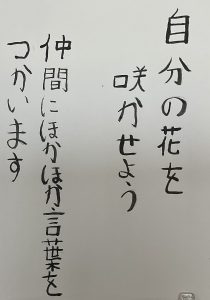 自分の花を
咲かせよう
仲間にほかほか言葉を
つかいます